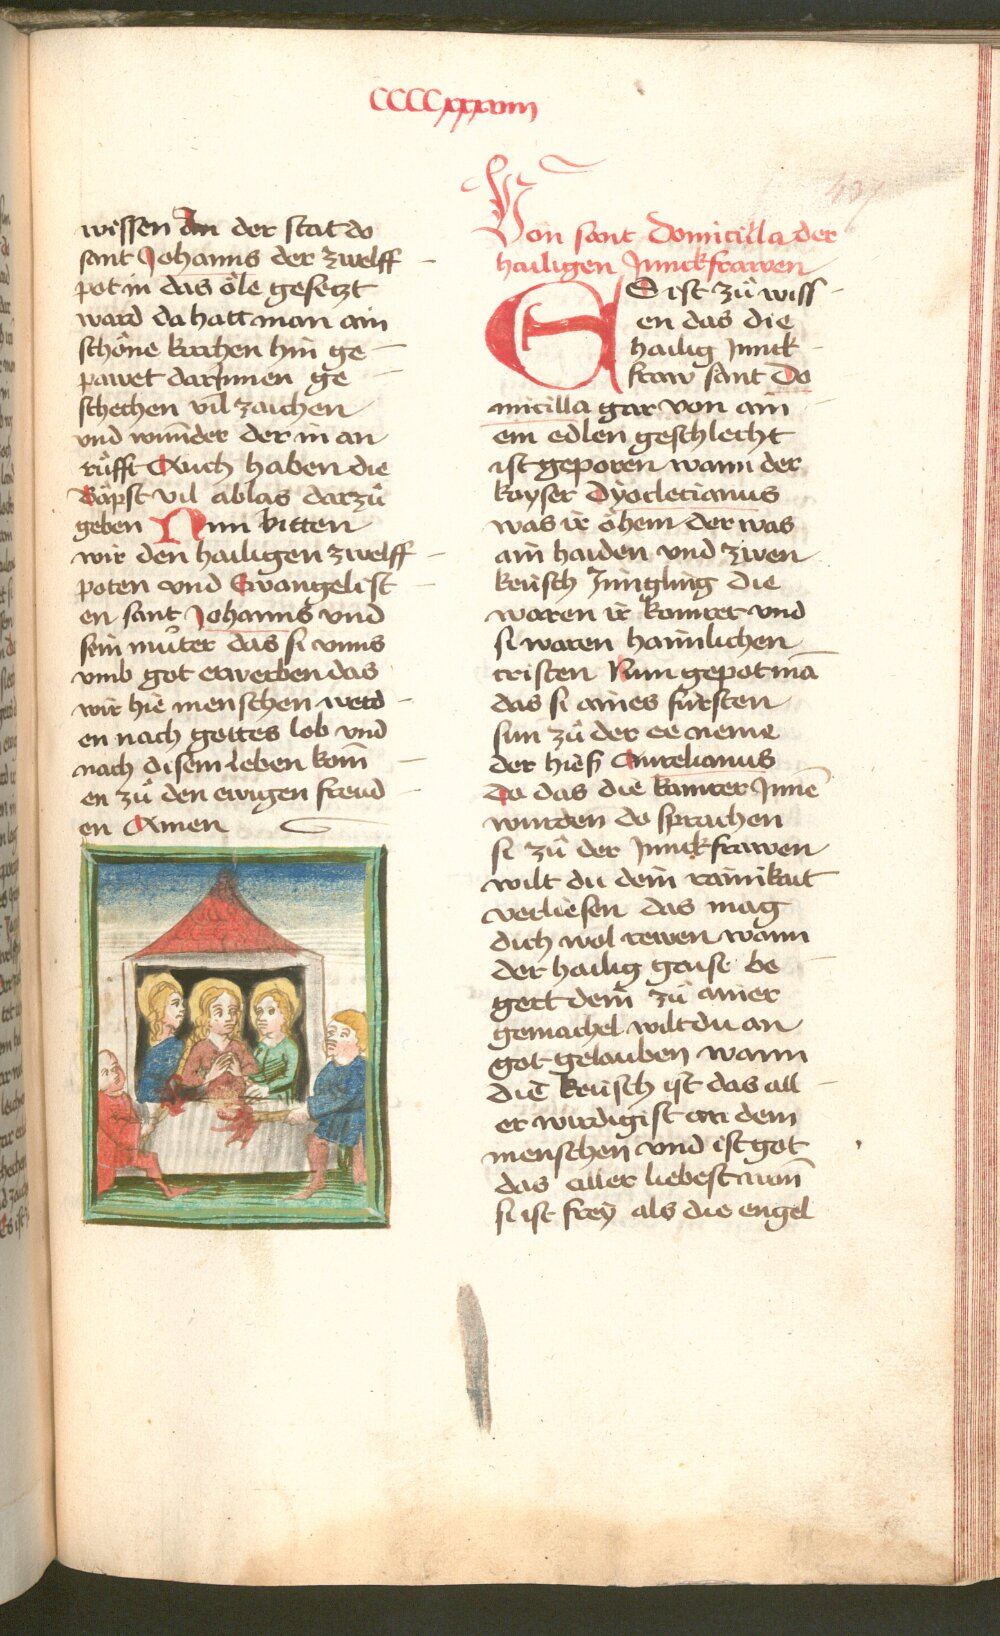 CCCCxxxviiii
wissen An der stat do
sant Johanns der zwelff
pot in das öle gesetzt
ward da hatt man ain
schöne kirchen hin ge
pawet darÿnnen ge
schechen vil zaichen
vnd wunder der in an
rüfft Auch haben die
Bäpst vil ablas darzů
geben Nun bitten
wir den hailigen zwelff
poten vnd Ewangelist
en sant Johanns vnd
sein můter das si vnns
vmb got erwerben das
wir hie menschen werd
en nach gottes lob vnd
nach disem leben kom̄
en zů den ewigen freud
en Amen
Von sant Domicilla der
hailigen Junckfrawen
ES ist zů wiss
en das die
hailig Junck
fraw sant Do
micilla gar von ain
em edlen geschlecht
ist geporen wann der
kayser Dyocletianus
was ir öhem der was
ain haiden vnd zwen
keüsch Jüngling die
waren ir kamrer vnd
si waren haimlichen
cristen Nun gepot mā
das si aines fürsten
sun zů der ee neme
der hieß Aurelianus
Do das die kamrer Innē
wurden do sprachen
si zů der Junckfrawen
wilt du dein rainikait
verliesen das mag
dich wol rewen wann
der hailig gaist be
gert dein zů ainer
gemachel wilt du an
got gelauben wann
die keüsch ist das all
er wirdigist an dem
menschen vnd ist got
das aller liebest wan̄
si ist frey als die engel